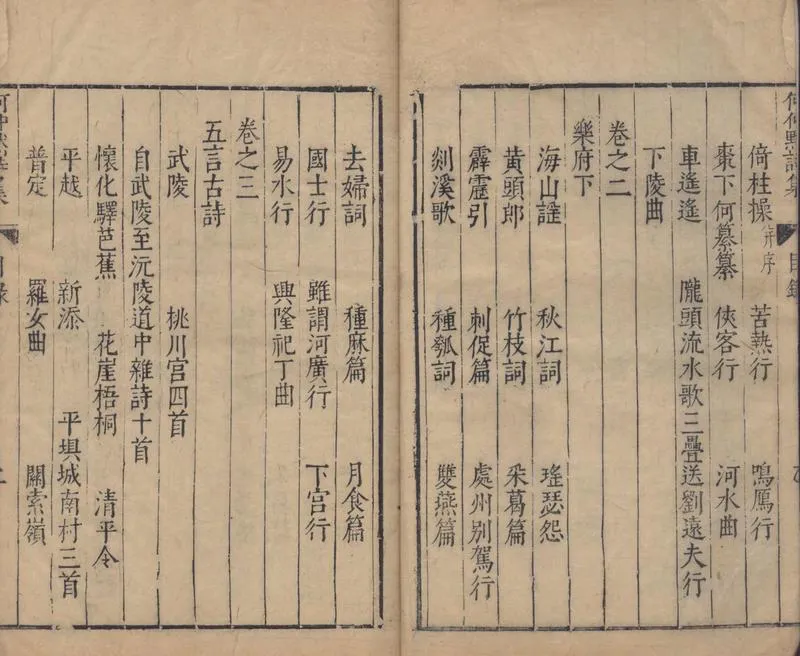 倚柱操并序 苦熱行 鳴鴈行
棗下何纂纂 俠客行 河水曲
車遙遙 隴頭流水歌三疊 送劉遠夫行
下陵曲
卷之二
樂府下
海山謠 秋江詞 瑤瑟怨
黃頭郎 竹枝詞 采葛篇
霹靂引 刺促篇 處州別駕行
剡溪歌 種瓠詞 雙燕篇
去婦詞 種麻篇 月食篇
國士行 雖謂河廣行 下宮行
易水行 興隆祀丁曲
卷之三
五言古詩
武陵 桃川宮四首
自武陵至沅陵道中雜詩十首
懷化驛芭蕉 花崖梧桐 清平令
平越 新添 平垻城南村三首
普定 羅女曲 關索嶺
目錄